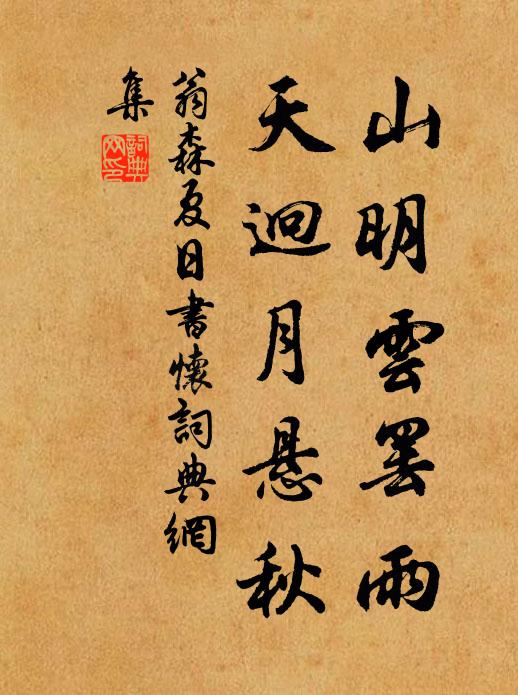 山明雲罷雨
天迥月懸秋
翁森夏日書懷詞典網
集
詞典
网印